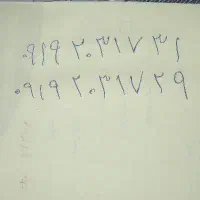 ۰۹۱۹ ۲۰۳۱۷ ۳۱
۰۹۱۹ ۲۰۳۱۷ ۲۹